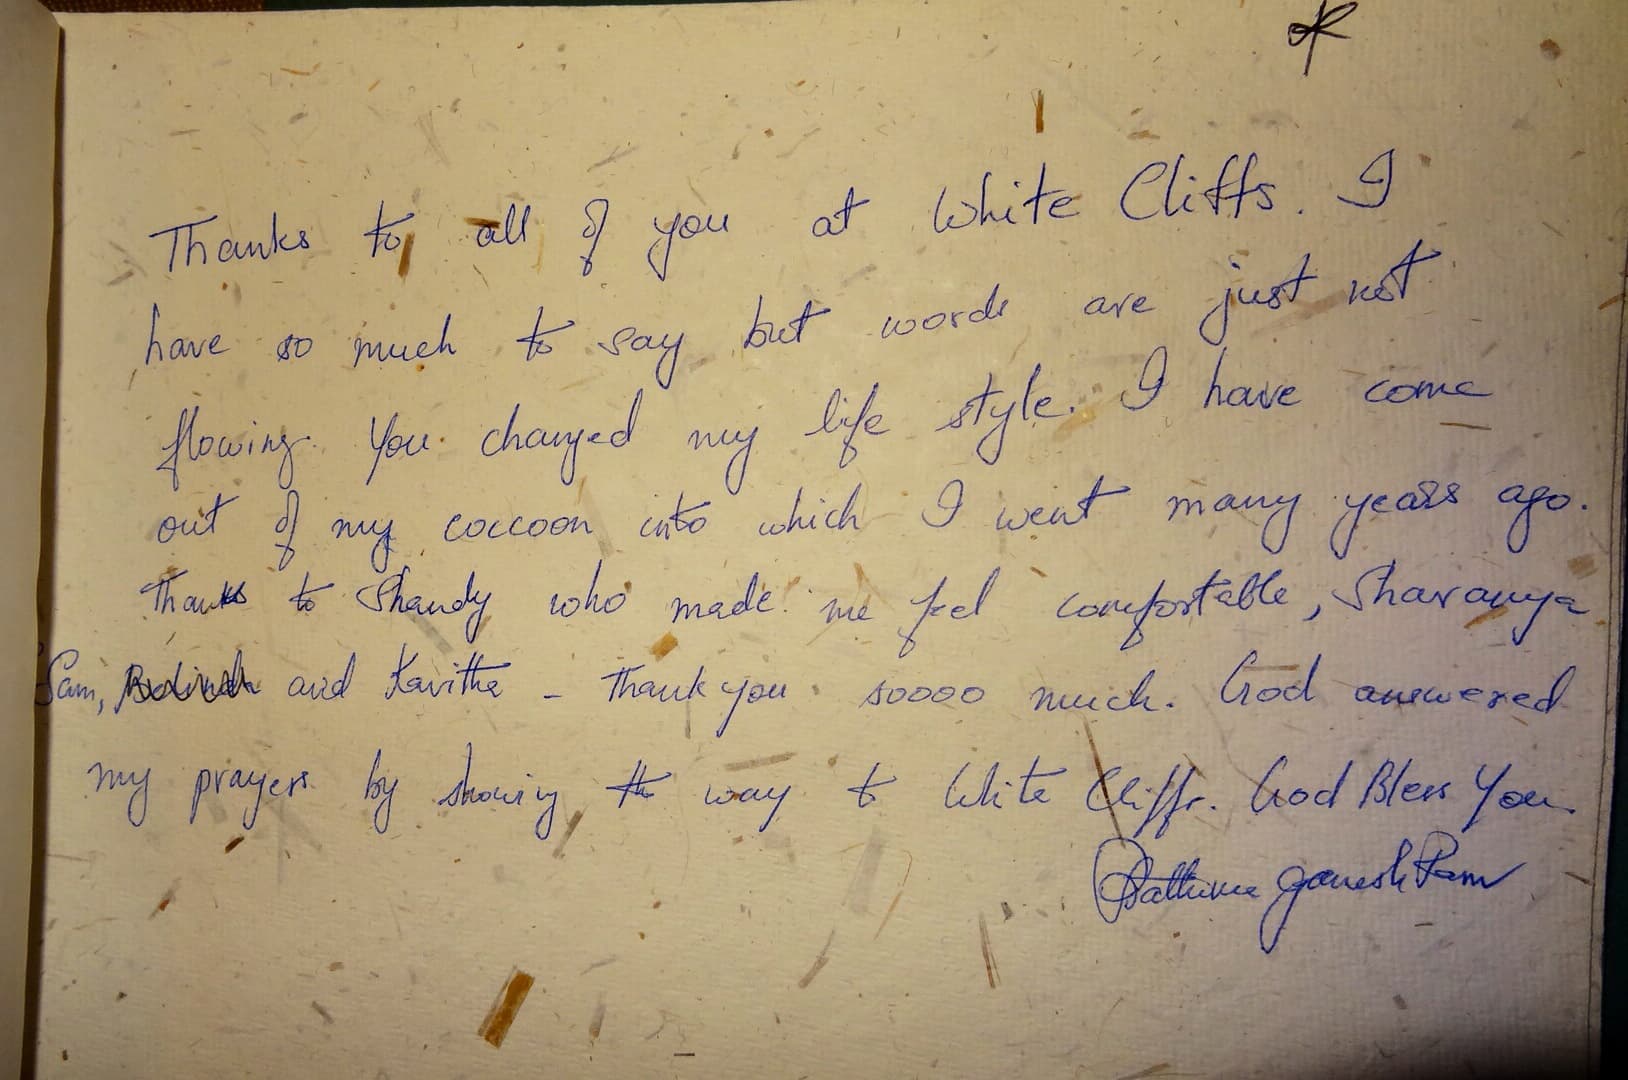 Thanks to all of you at White Cliffs. I
have so much to say but words are just not
flowing. You changed my life style. I have come
out of my coccoon into which I went many years ago.
Thanks to Shandy who made me feel comfortable, Sharanya
Sam, and Kavitha - Thank you soooo much. God answered
my prayers by showing the way to White Cliffs. God Bless You.
Ganesh Ram